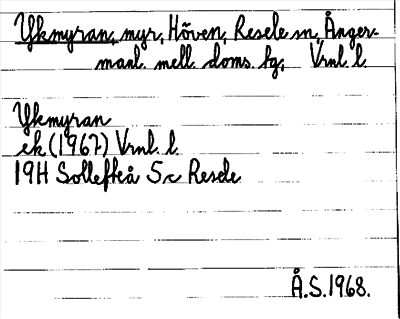 Ykmyran, myr, Höven, Resele sn, Ånger-
manl. mell. doms. fg, Vrnl. l.
Ykmyran
ek (1967) Vrnl. l.
19H Sollefteå 5c Resele
Å.S.1968.